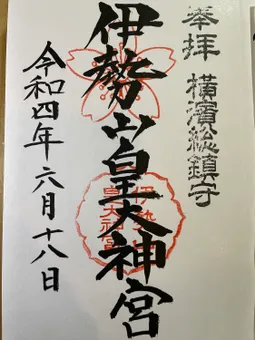 奉拝 横濱総鎮守
伊勢山皇大神宮
令和四年六月十八日
伊勢山
皇大神宮